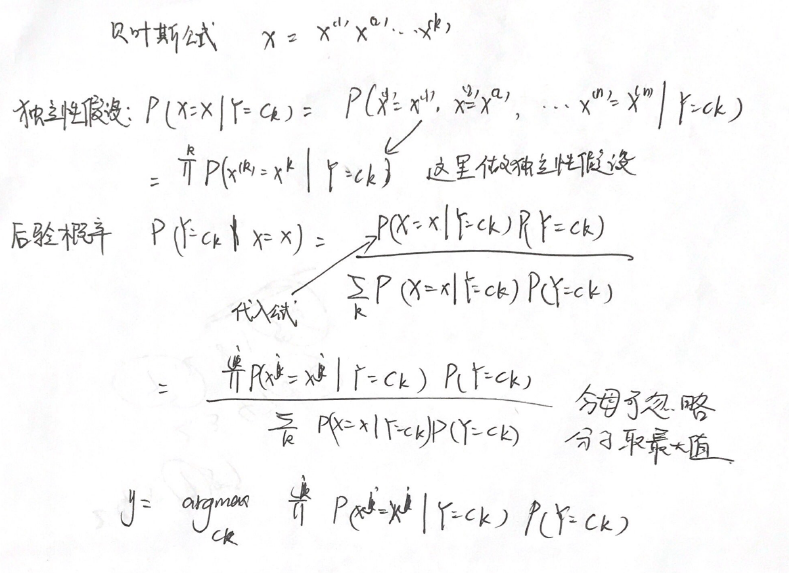 贝叶斯公式 X = x⁽¹⁾ x⁽²⁾ ... x⁽ᵏ⁾
独立性假设: P(X=x|Y=Ck) = P(X⁽¹⁾=x⁽¹⁾, X⁽²⁾=x⁽²⁾, ... X⁽ⁿ⁾=x⁽ⁿ⁾|Y=Ck)
= ∏ P(x⁽ᵏ⁾=xᵏ | Y=Ck) 这里做独立性假设
后验概率 P(Y=Ck | X=x) = P(X=x|Y=Ck) P(Y=Ck)
∑k P(X=x|Y=Ck) P(Y=Ck)
代入公式
= ∏ P(xʲ=xʲ | Y=Ck) P(Y=Ck)
∑k P(X=x|Y=Ck)P(Y=Ck)
分母可忽略
分子取最大值
y = argmax ∏ P(xʲ=xʲ | Y=Ck) P(Y=Ck)
Ck